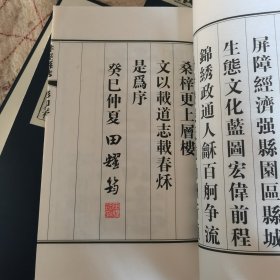 屏障經濟强縣園區縣城
生態文化藍圖宏偉前程
錦綉政通人龢百舸争流
桑梓更上層樓
文以載道志載春秌
是爲序
癸巳仲夏 田耀筠